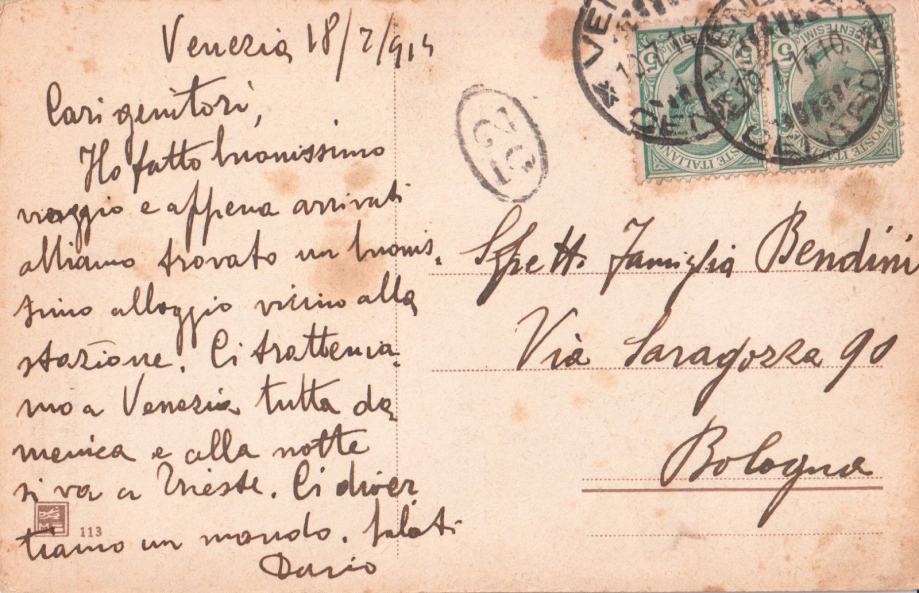 Venezia 18/7/914
Cari genitori,
Ho fatto buonissimo
viaggio e appena arrivati
abbiamo trovato un buonis-
simo alloggio vicino alla
stazione. Ci trattenia-
mo a Venezia tutta do
menica e alla notte
si va a Trieste. Ci diver
tiamo un mondo. Saluti
Dario
113
25
Spett. Famiglia Bendini
Via Saragozza 90
Bologna
POSTE ITALIANE
CENTESIMI
5
VENEZIA
CENTRO